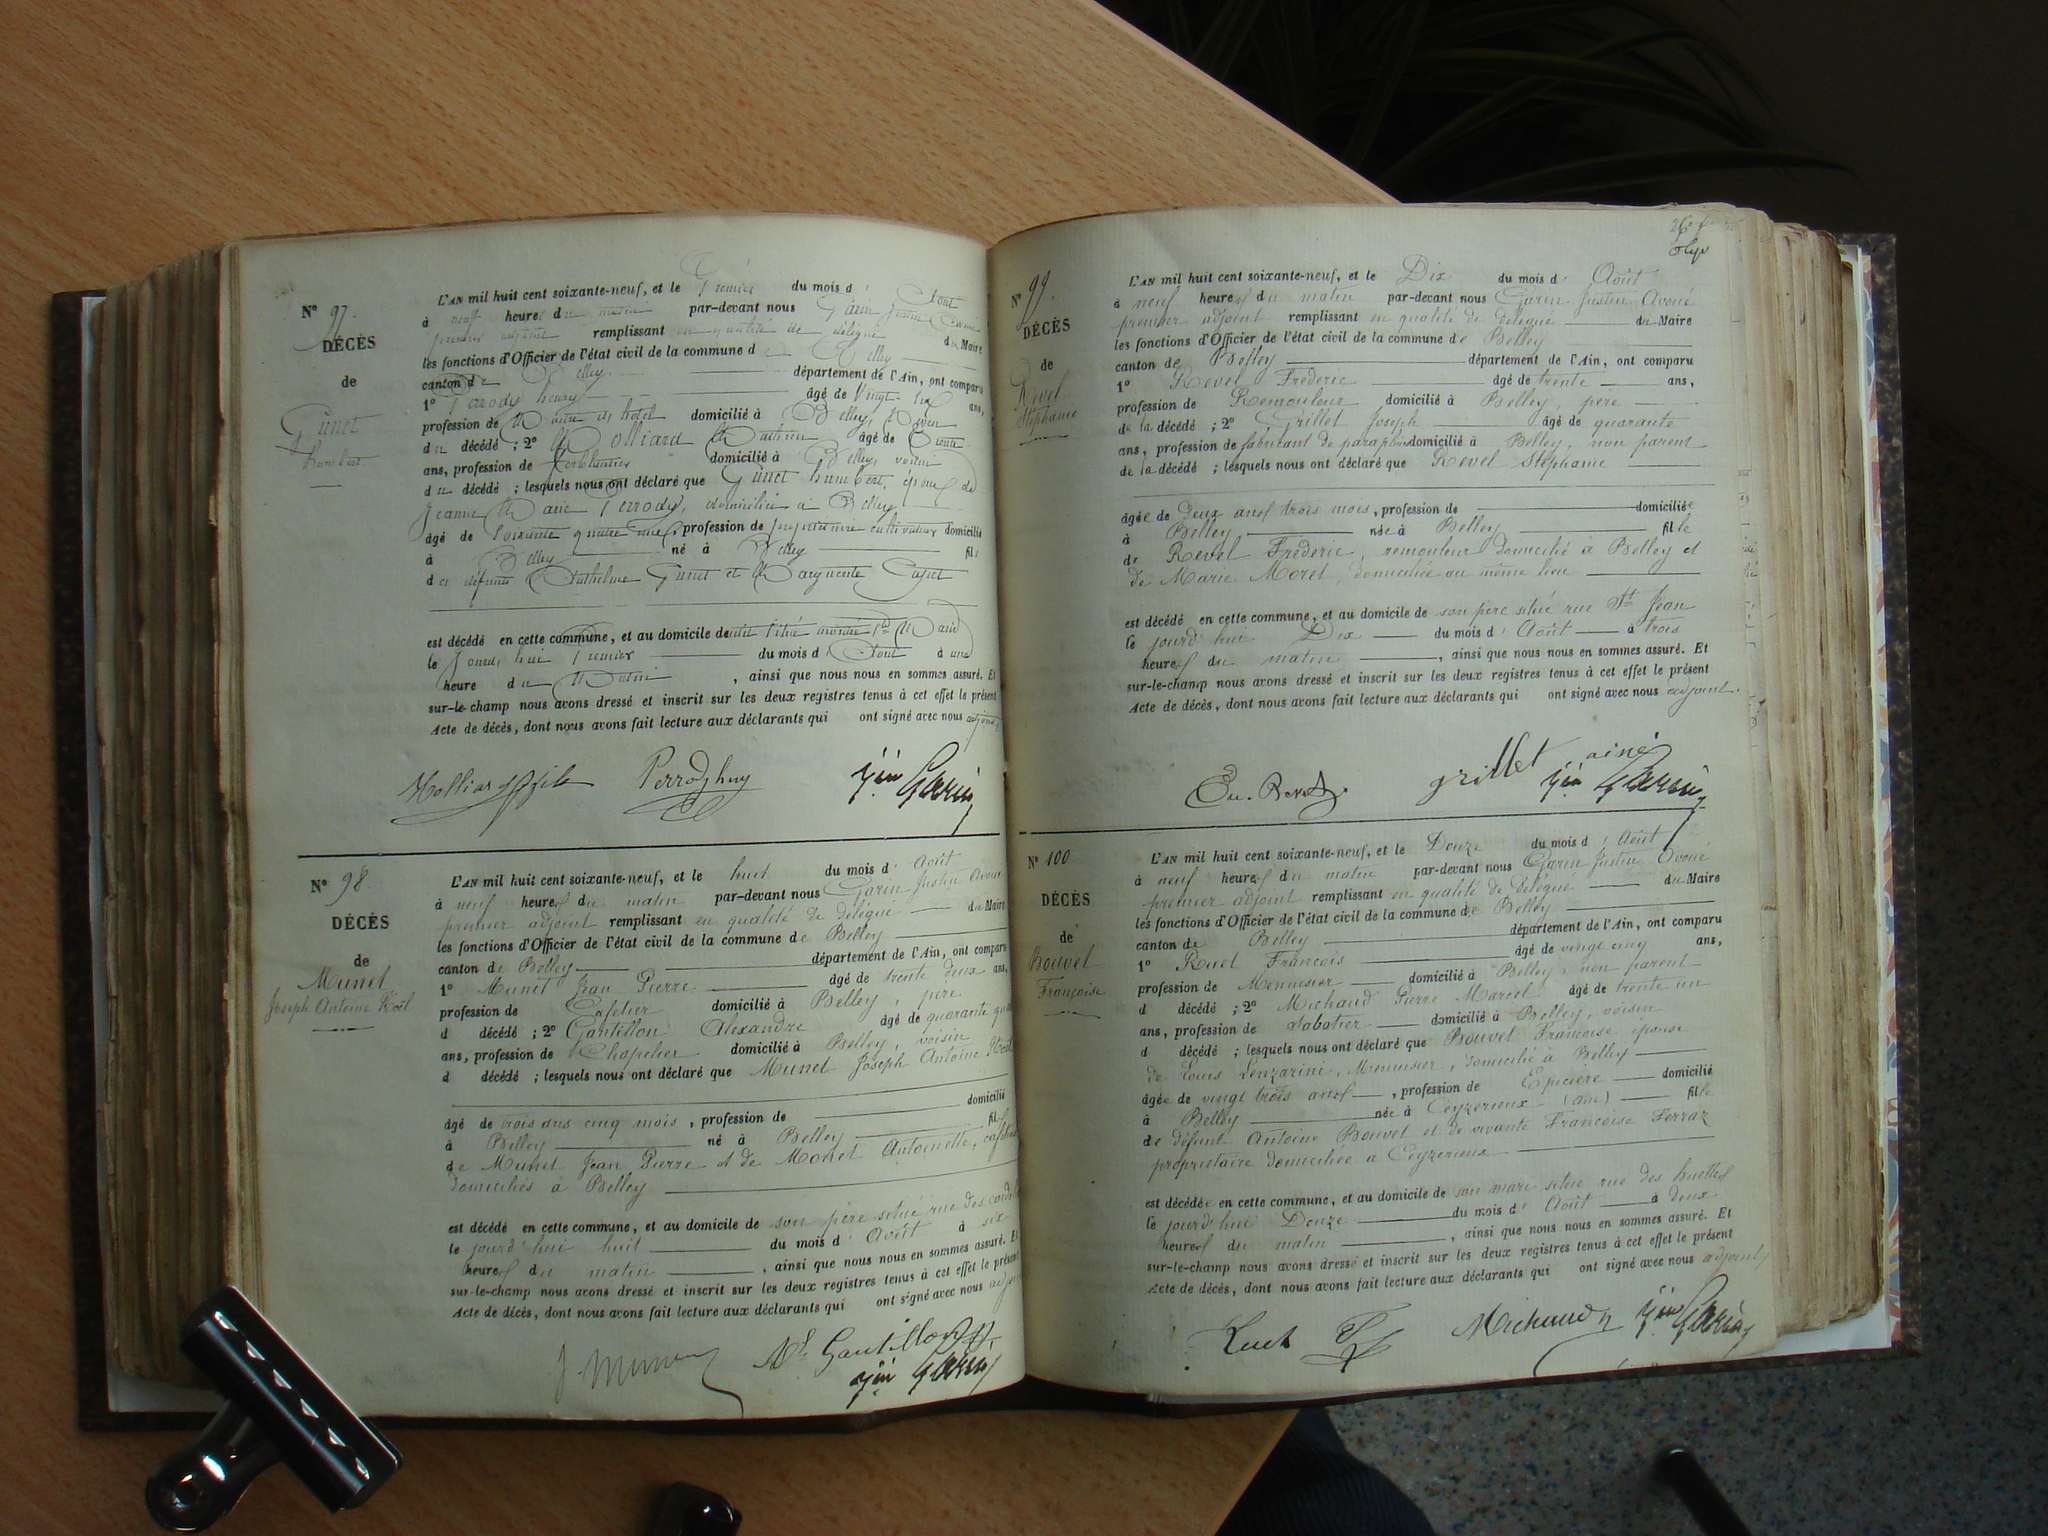 N° 97.
DÉCÈS
de
Gunet
Humbert
L'AN mil huit cent soixante-neuf, et le Premier du mois d' Aout
à neuf heures du matin par-devant nous Garin Justin Avoué
premier adjoint remplissant en qualité de délégué du Maire
les fonctions d'Officier de l'état civil de la commune de Belley
canton de Belley département de l'Ain, ont comparu
1° Perrody henry âgé de Vingt six ans,
profession de Maitre de hotel domicilié à Belley, Voisin
du décédé ; 2° Molliard âgé de Trente
ans, profession de ferblantier domicilié à Belley, voisin
du décédé ; lesquels nous ont déclaré que Gunet humbert, époux de
Jeanne Marie Perrody, domicilié à Belley
âgé de Soixante quatre ans, profession de propriétaire cultivateur domicilié
à Belley né à Belley fils
des défunts Anthelme Gunet et Marguerite
est décédé en cette commune, et au domicile de
le Jourd'hui Premier du mois d' Aout à une
heure du Matin , ainsi que nous nous en sommes assuré. Et
sur-le-champ nous avons dressé et inscrit sur les deux registres tenus à cet effet le présent
Acte de décès, dont nous avons fait lecture aux déclarants qui ont signé avec nous adjoint
Perrody hny Jin Garin
N° 98.
DÉCÈS
de
Munet
Joseph Antoine Noël
L'AN mil huit cent soixante-neuf, et le huit du mois d' Août
à neuf heures du matin par-devant nous Garin Justin Avoué
premier adjoint remplissant en qualité de délégué du Maire
les fonctions d'Officier de l'état civil de la commune de Belley
canton de Belley département de l'Ain, ont comparu
1° Munet Jean Pierre âgé de trente deux ans,
profession de Cafetier domicilié à Belley, père
d décédé ; 2° Gantillon Alexandre âgé de quarante
ans, profession de Chapelier domicilié à Belley, voisin
d décédé ; lesquels nous ont déclaré que Munet Joseph Antoine Noël
domicilié
âgé de trois ans cinq mois, profession de
à Belley né à Belley fils
de Munet Jean Pierre et de Monet Antoinette,
domiciliés à Belley
est décédé en cette commune, et au domicile de son père situé rue des
le jourd'hui huit du mois d' Août à six
heures du matin , ainsi que nous nous en sommes assuré. Et
sur-le-champ nous avons dressé et inscrit sur les deux registres tenus à cet effet le présent
Acte de décès, dont nous avons fait lecture aux déclarants qui ont signé avec nous adjoint
Gantillon
Jin Garin
N° 99.
DÉCÈS
de
Revel
Stéphanie
L'AN mil huit cent soixante-neuf, et le Dix du mois d' Août
à neuf heures du matin par-devant nous Garin Justin Avoué
premier adjoint remplissant en qualité de délégué du Maire
les fonctions d'Officier de l'état civil de la commune de Belley
canton de Belley département de l'Ain, ont comparu
1° Revel Fréderic âgé de trente ans,
profession de Remouleur domicilié à Belley, père
de la décédé ; 2° Grillet Joseph âgé de quarante
ans, profession de fabricant de parapluies domicilié à Belley, non parent
de la décédé ; lesquels nous ont déclaré que Revel Stéphanie
âgée de Deux ans trois mois, profession de domiciliée
à Belley née à Belley fille
de Revel Fréderic, remouleur domicilié à Belley et
de Marie Moret, domiciliée au même lieu
est décédé en cette commune, et au domicile de son père situé rue St Jean
le jourd'hui Dix du mois d' Août à trois
heures du matin , ainsi que nous nous en sommes assuré. Et
sur-le-champ nous avons dressé et inscrit sur les deux registres tenus à cet effet le présent
Acte de décès, dont nous avons fait lecture aux déclarants qui ont signé avec nous adjoint.
grillet ainé
Jin Garin
N° 100
DÉCÈS
de
Bouvet
Françoise
L'AN mil huit cent soixante-neuf, et le Douze du mois d' Août
à neuf heures du matin par-devant nous Garin Justin Avoué
premier adjoint remplissant en qualité de délégué du Maire
les fonctions d'Officier de l'état civil de la commune de Belley
canton de Belley département de l'Ain, ont comparu
1° Ruet François âgé de vingt cinq ans,
profession de Menuisier domicilié à Belley, non parent
d décédé ; 2° Michaud Pierre Marcel âgé de trente un
ans, profession de Sabotier domicilié à Belley, voisin
d décédé ; lesquels nous ont déclaré que Bouvet Françoise épouse
de Louis Lenzarini, Menuisier, domicilié à Belley
âgée de vingt trois ans, profession de Epicière domicilié
à Belley née à Ceyzerieux (Ain) fille
de défunt Antoine Bouvet et de vivante Françoise Ferraz
propriétaire domiciliée à Ceyzerieux
est décédée en cette commune, et au domicile de son mari situé rue des
le jourd'hui Douze du mois d' Août à deux
heures du matin , ainsi que nous nous en sommes assuré. Et
sur-le-champ nous avons dressé et inscrit sur les deux registres tenus à cet effet le présent
Acte de décès, dont nous avons fait lecture aux déclarants qui ont signé avec nous adjoint
Ruet Michaud Jin Garin